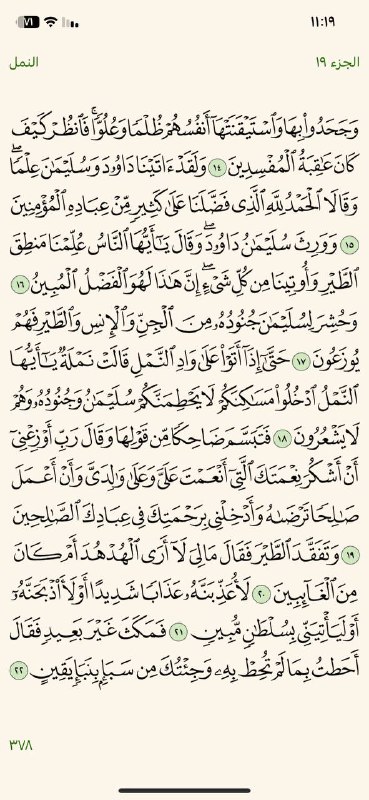 ١١:١٩
٧١
الجزء ١٩
النمل
وَجَحَدُواْ بِهَا وَٱسْتَيْقَنَتْهَآ أَنفُسُهُمْ ظُلْمًا وَعُلُوًّاۚ فَٱنظُرْ كَيْفَ
كَانَ عَٰقِبَةُ ٱلْمُفْسِدِينَ ١٤ وَلَقَدْ ءَاتَيْنَا دَاوُۥدَ وَسُلَيْمَٰنَ عِلْمًاۖ
وَقَالَا ٱلْحَمْدُ لِلَّهِ ٱلَّذِى فَضَّلَنَا عَلَىٰ كَثِيرٍ مِّنْ عِبَادِهِ ٱلْمُؤْمِنِينَ
١٥ وَوَرِثَ سُلَيْمَٰنُ دَاوُۥدَۖ وَقَالَ يَٰٓأَيُّهَا ٱلنَّاسُ عُلِّمْنَا مَنطِقَ
ٱلطَّيْرِ وَأُوتِينَا مِن كُلِّ شَىْءٍۖ إِنَّ هَٰذَا لَهُوَ ٱلْفَضْلُ ٱلْمُبِينُ ١٦
وَحُشِرَ لِسُلَيْمَٰنَ جُنُودُهُۥ مِنَ ٱلْجِنِّ وَٱلْإِنسِ وَٱلطَّيْرِ فَهُمْ
يُوزَعُونَ ١٧ حَتَّىٰٓ إِذَآ أَتَوْاْ عَلَىٰ وَادِ ٱلنَّمْلِ قَالَتْ نَمْلَةٌ يَٰٓأَيُّهَا
ٱلنَّمْلُ ٱدْخُلُواْ مَسَٰكِنَكُمْ لَا يَحْطِمَنَّكُمْ سُلَيْمَٰنُ وَجُنُودُهُۥ وَهُمْ
لَا يَشْعُرُونَ ١٨ فَتَبَسَّمَ ضَاحِكًا مِّن قَوْلِهَا وَقَالَ رَبِّ أَوْزِعْنِىٓ
أَنْ أَشْكُرَ نِعْمَتَكَ ٱلَّتِىٓ أَنْعَمْتَ عَلَىَّ وَعَلَىٰ وَٰلِدَىَّ وَأَنْ أَعْمَلَ
صَٰلِحًا تَرْضَىٰهُ وَأَدْخِلْنِى بِرَحْمَتِكَ فِى عِبَادِكَ ٱلصَّٰلِحِينَ
١٩ وَتَفَقَّدَ ٱلطَّيْرَ فَقَالَ مَالِىَ لَآ أَرَى ٱلْهُدْهُدَ أَمْ كَانَ
مِنَ ٱلْغَآئِبِينَ ٢٠ لَأُعَذِّبَنَّهُۥ عَذَابًا شَدِيدًا أَوْ لَأَاْذْبَحَنَّهُۥٓ
أَوْ لَيَأْتِيَنِّى بِسُلْطَٰنٍ مُّبِينٍ ٢١ فَمَكَثَ غَيْرَ بَعِيدٍ فَقَالَ
أَحَطتُ بِمَا لَمْ تُحِطْ بِهِۦ وَجِئْتُكَ مِن سَبَإٍۭ بِنَبَإٍ يَقِينٍ ٢٢
٣٧٨